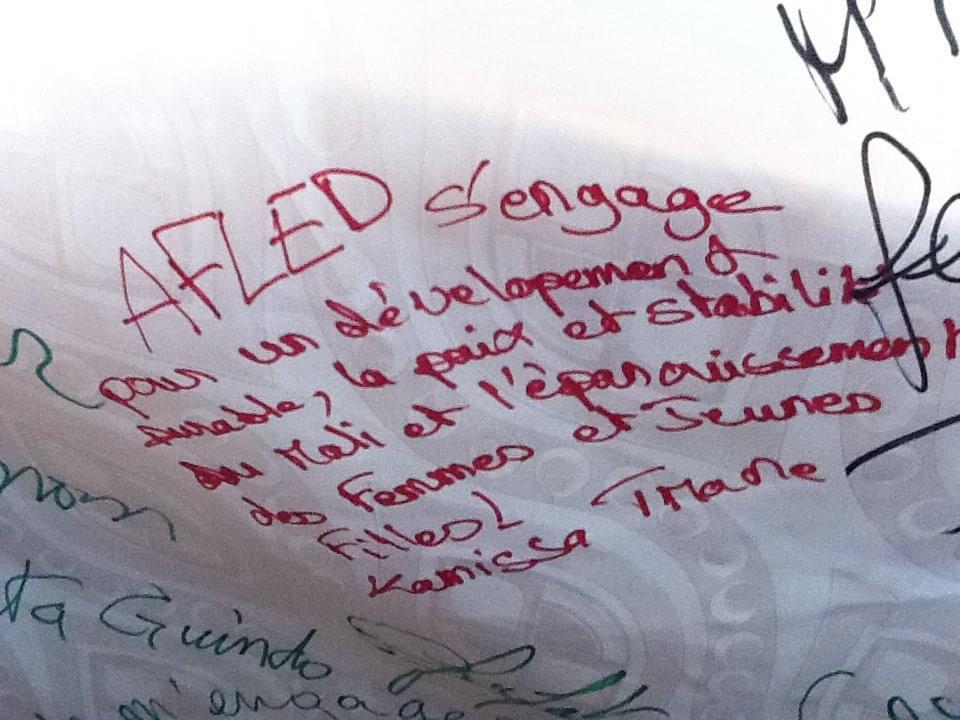 AFLED s'engage
pour un dévelopement
durable, la paix et stabilité
du Mali et l'épanouissement
des Femmes et Jeunes
Filles!
Kanissa
ta Guindo
m'engage